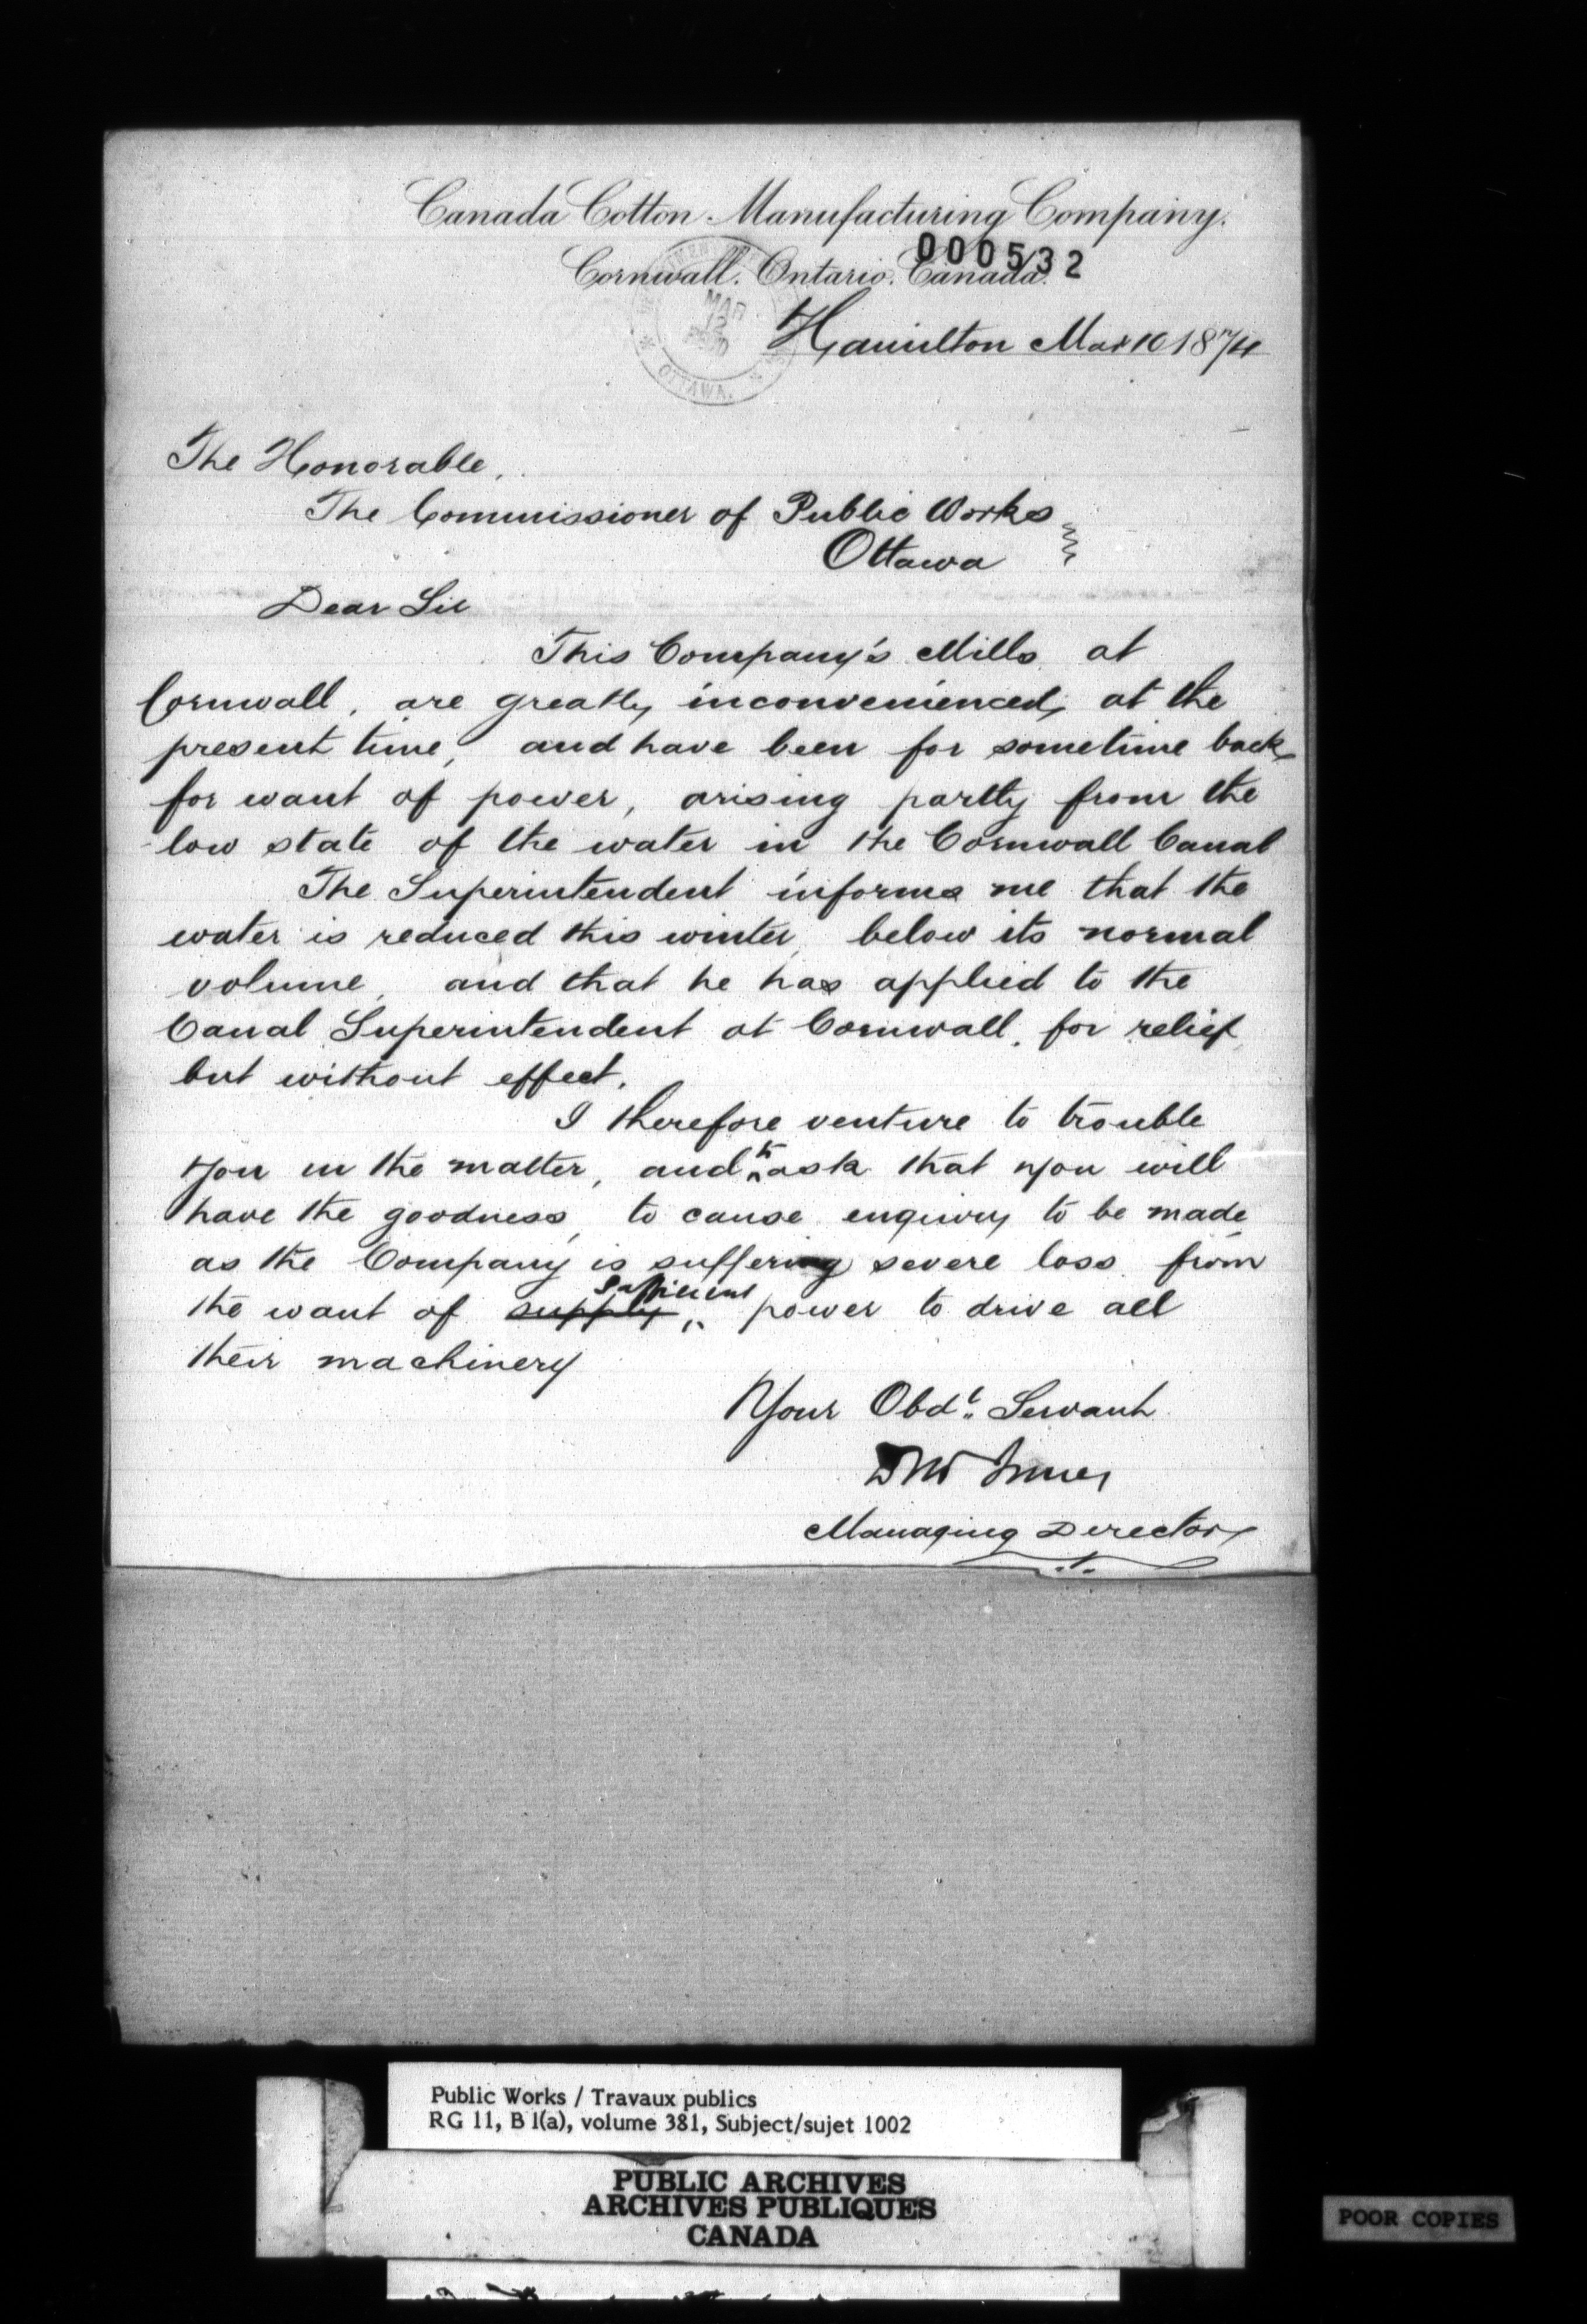 Canada Cotton Manufacturing Company.
000532
Cornwall. Ontario. Canada.
MAR 12
OTTAWA.
Hamilton Mar 10 1874
The Honorable,
The Commissioner of Public Works
Ottawa
Dear Sir
This Company's Mills at
Cornwall, are greatly inconvenienced, at the
present time, and have been for sometime back,
for want of power, arising partly from the
low state of the water in the Cornwall Canal
The Superintendent informs me that the
water is reduced this winter, below its normal
volume, and that he has applied to the
Canal Superintendent at Cornwall, for relief,
but without effect.
I therefore venture to trouble
you in the matter, and to ask that you will
have the goodness, to cause enquiry to be made,
as the Company is suffering severe loss from
the want of supply sufficient power to drive all
their machinery
Your Obdt Servant
D McInnes
Managing Director
Public Works / Travaux publics
RG 11, B 1(a), volume 381, Subject/sujet 1002
PUBLIC ARCHIVES
ARCHIVES PUBLIQUES
CANADA
POOR COPIES